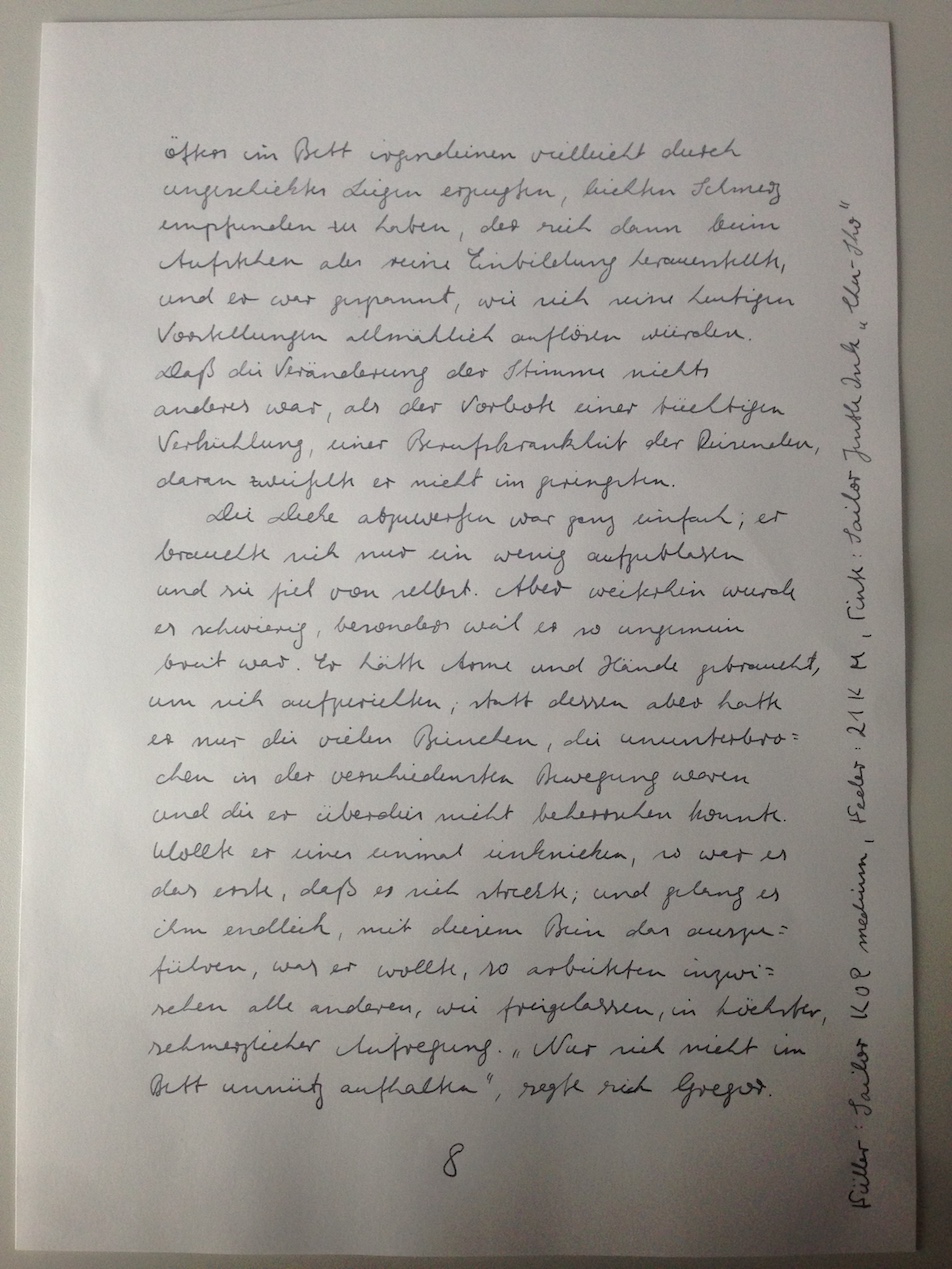 öfters im Bett irgendeinen vielleicht durch
ungeschicktes Liegen erzeugten, leichten Schmerz
empfunden zu haben, der sich dann beim
Aufstehen als reine Einbildung herausstellte,
und er war gespannt, wie sich seine heutigen
Vorstellungen allmählich auflösen würden.
Daß die Veränderung der Stimme nichts
anderes war, als der Vorbote einer tüchtigen
Verkühlung, einer Berufskrankheit der Reisenden,
daran zweifelte er nicht im geringsten.
Die Decke abzuwerfen war ganz einfach; er
brauchte sich nur ein wenig aufzublasen
und sie fiel von selbst. Aber weiterhin wurde
es schwierig, besonders weil er so ungemein
breit war. Er hätte Arme und Hände gebraucht,
um sich aufzurichten; statt dessen aber hatte
er nur die vielen Beinchen, die ununterbro=
chen in der verschiedensten Bewegung waren
und die er überdies nicht beherrschen konnte.
Wollte er eines einmal einknicken, so war es
das erste, daß es sich streckte; und gelang es
ihm endlich, mit diesem Bein das auszu=
führen, was er wollte, so arbeiteten inzwi=
schen alle anderen, wie freigelassen, in höchster,
schmerzlicher Aufregung. „Nur sich nicht im
Bett unnütz aufhalten“, sagte sich Gregor.
8
Füller: Sailor KOP medium, Feder: 21K M, Tinte: Sailor Jentle Ink „Chu-Shu“